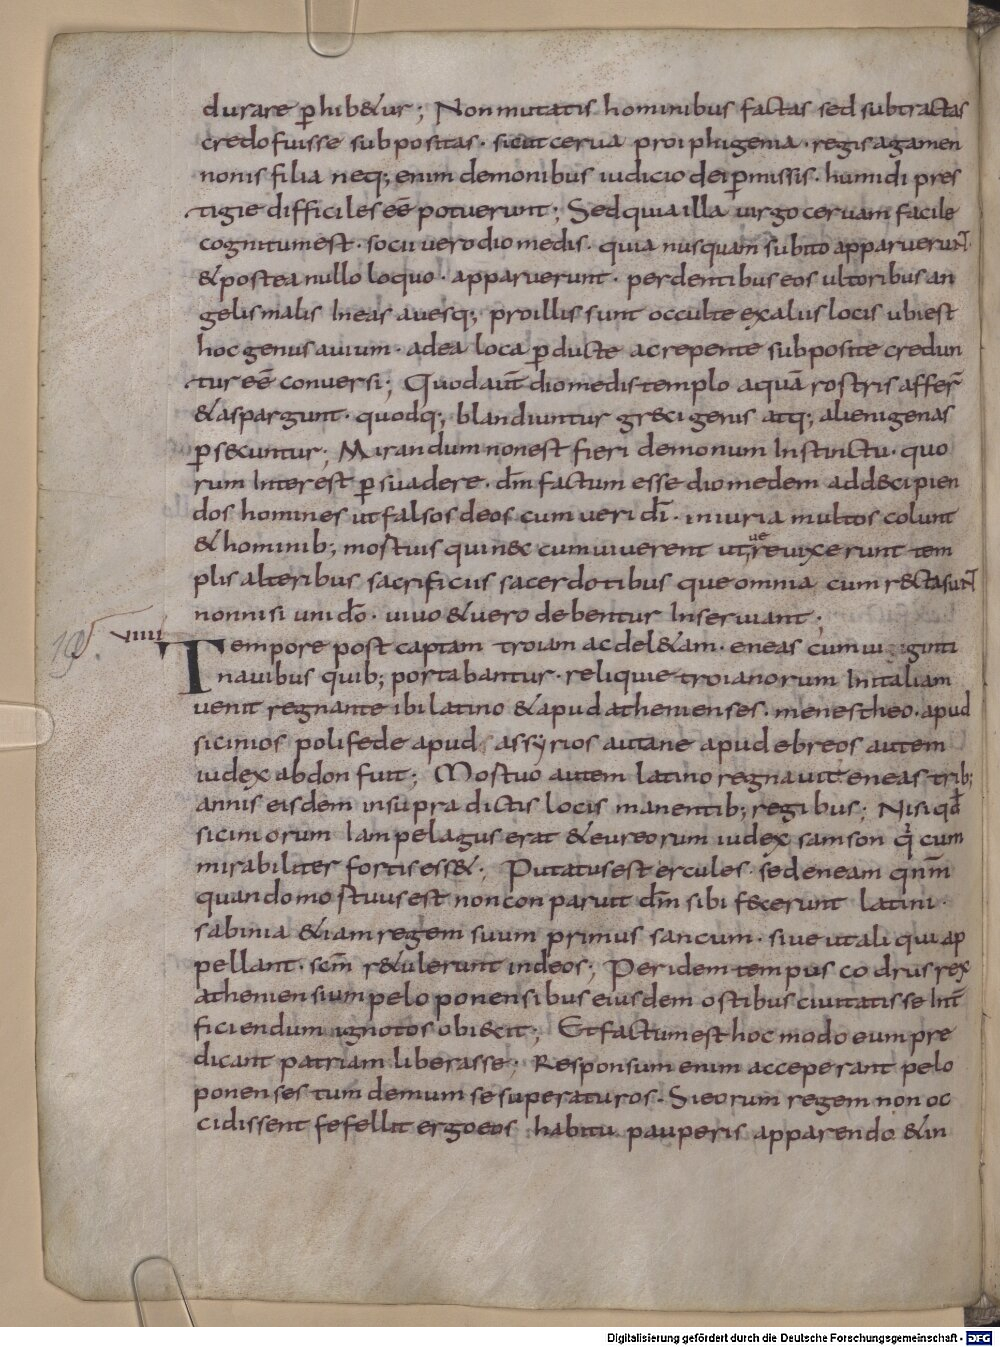 durare ꝑhib&ur; Non mutatis hominibus factas sed subtractas
credo fuisse subpositas· sicut cerua pro iphigenia· regis agamen
nonis filia neq; enim demonibus iudicio dei ꝑmissis· humidi pres
tigie difficiles eē potuerunt; Sed quia illa uirgo ceruam facile
cognitum est· socii uero diomedis· quia nusquam subito apparuerunt
& postea nullo loquo· apparuerunt· perdentibus eos ultoribus an
gelis malis Ineas auesq; pro illis sunt occulte ex aliis locis ubi est
hoc genus auium· ad ea loca ꝑducte ac repente subposite credun
tur eē conuersi; Quod aut̄ diomedis templo aquā rostris affer̄
& aspargunt· quodq; blandiuntur gr&ci genis atq; alienigenas
ꝑs&cuntur; Mirandum non est fieri demonum Instinctu· quo
rum Interest ꝑsuadere· dm̄ factum esse diomedem ad d&cipien
dos homines ut falsos deos cum ueri dī· iniuria multos colunt
& hominib; mostuis qui n&c cum uiuerent ut;
ue
reuixerunt tem
plis alteribus sacrificiis sacerdotibus que omnia cum r&ta sunt
non nisi uni dō· uiuo & uero debentur Inseruiant;
195. VIIII Tempore post captam troiam ac del&am· eneas cum uiginti
nauibus quib; portabantur· reliquie troianorum In italiam
uenit regnante ibi latino & apud athenienses· menestheo· apud
sicinios polifede apud assÿrios autane apud ebreos autem
iudex abdon fuit; Mostuo autem latino regnauit eneas trib;
annis eisdem in supra dictis locis manentib; regibus; Nisi qđ
siciniorum Iam pelagus erat & eureorum iudex samson q' cum
mirabiliter fortis ess&; Putatus est ercules· sed eneam qnm̄
quando mostuus est non conparuit dm̄ sibi f&cerunt latini·
sabinia &iam regem suum primus sancum· siue ut aliqui ap
pellant· scm̄ r&ulerunt in deos; Per idem tempus codrus rex
atheniensium peloponensibus eiusdem ostibus ciuitatis se Int̄
ficiendum ignotos obi&cit; Et factum est hoc modo eum pre
dicant patriam liberasse· Responsum enim acceperant pelo
ponenses tum demum se superaturos· Si eorum regem non oc
cidissent fefellit ergo eos habitu pauperis apparendo & in
Digitalisierung gefördert durch die Deutsche Forschungsgemeinschaft - DFG